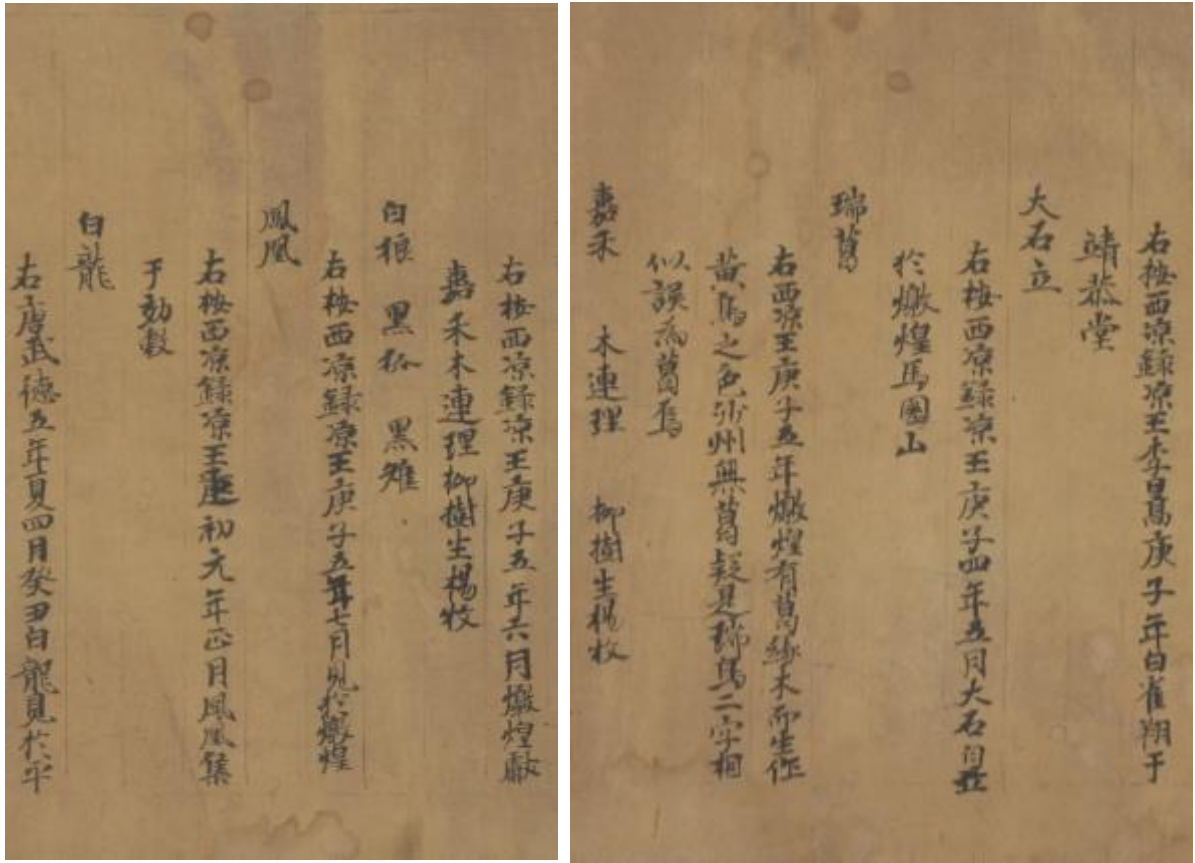 右桉西凉錄凉王李暠庚子年白雀翔于
靖恭堂
大石立
右桉西凉錄凉王庚子四年五月大石自立
於燉煌馬圈山
瑞葛
右西凉王庚子五年燉煌有葛緣木而生作
黃鳥之色沙州無葛疑是瑞鳥二字相
似誤為葛焉
嘉禾 木連理 柳樹生楊枚
右桉西凉錄凉王庚子五年六月燉煌獻
嘉禾木連理柳樹生楊枚
白狼 黑狐 黑雉
右桉西凉錄凉王庚子五年七月見於燉煌
鳳凰
右桉西凉錄凉王建初元年正月鳳凰集
于効穀
白龍
右唐武德五年夏四月癸丑白龍見於平